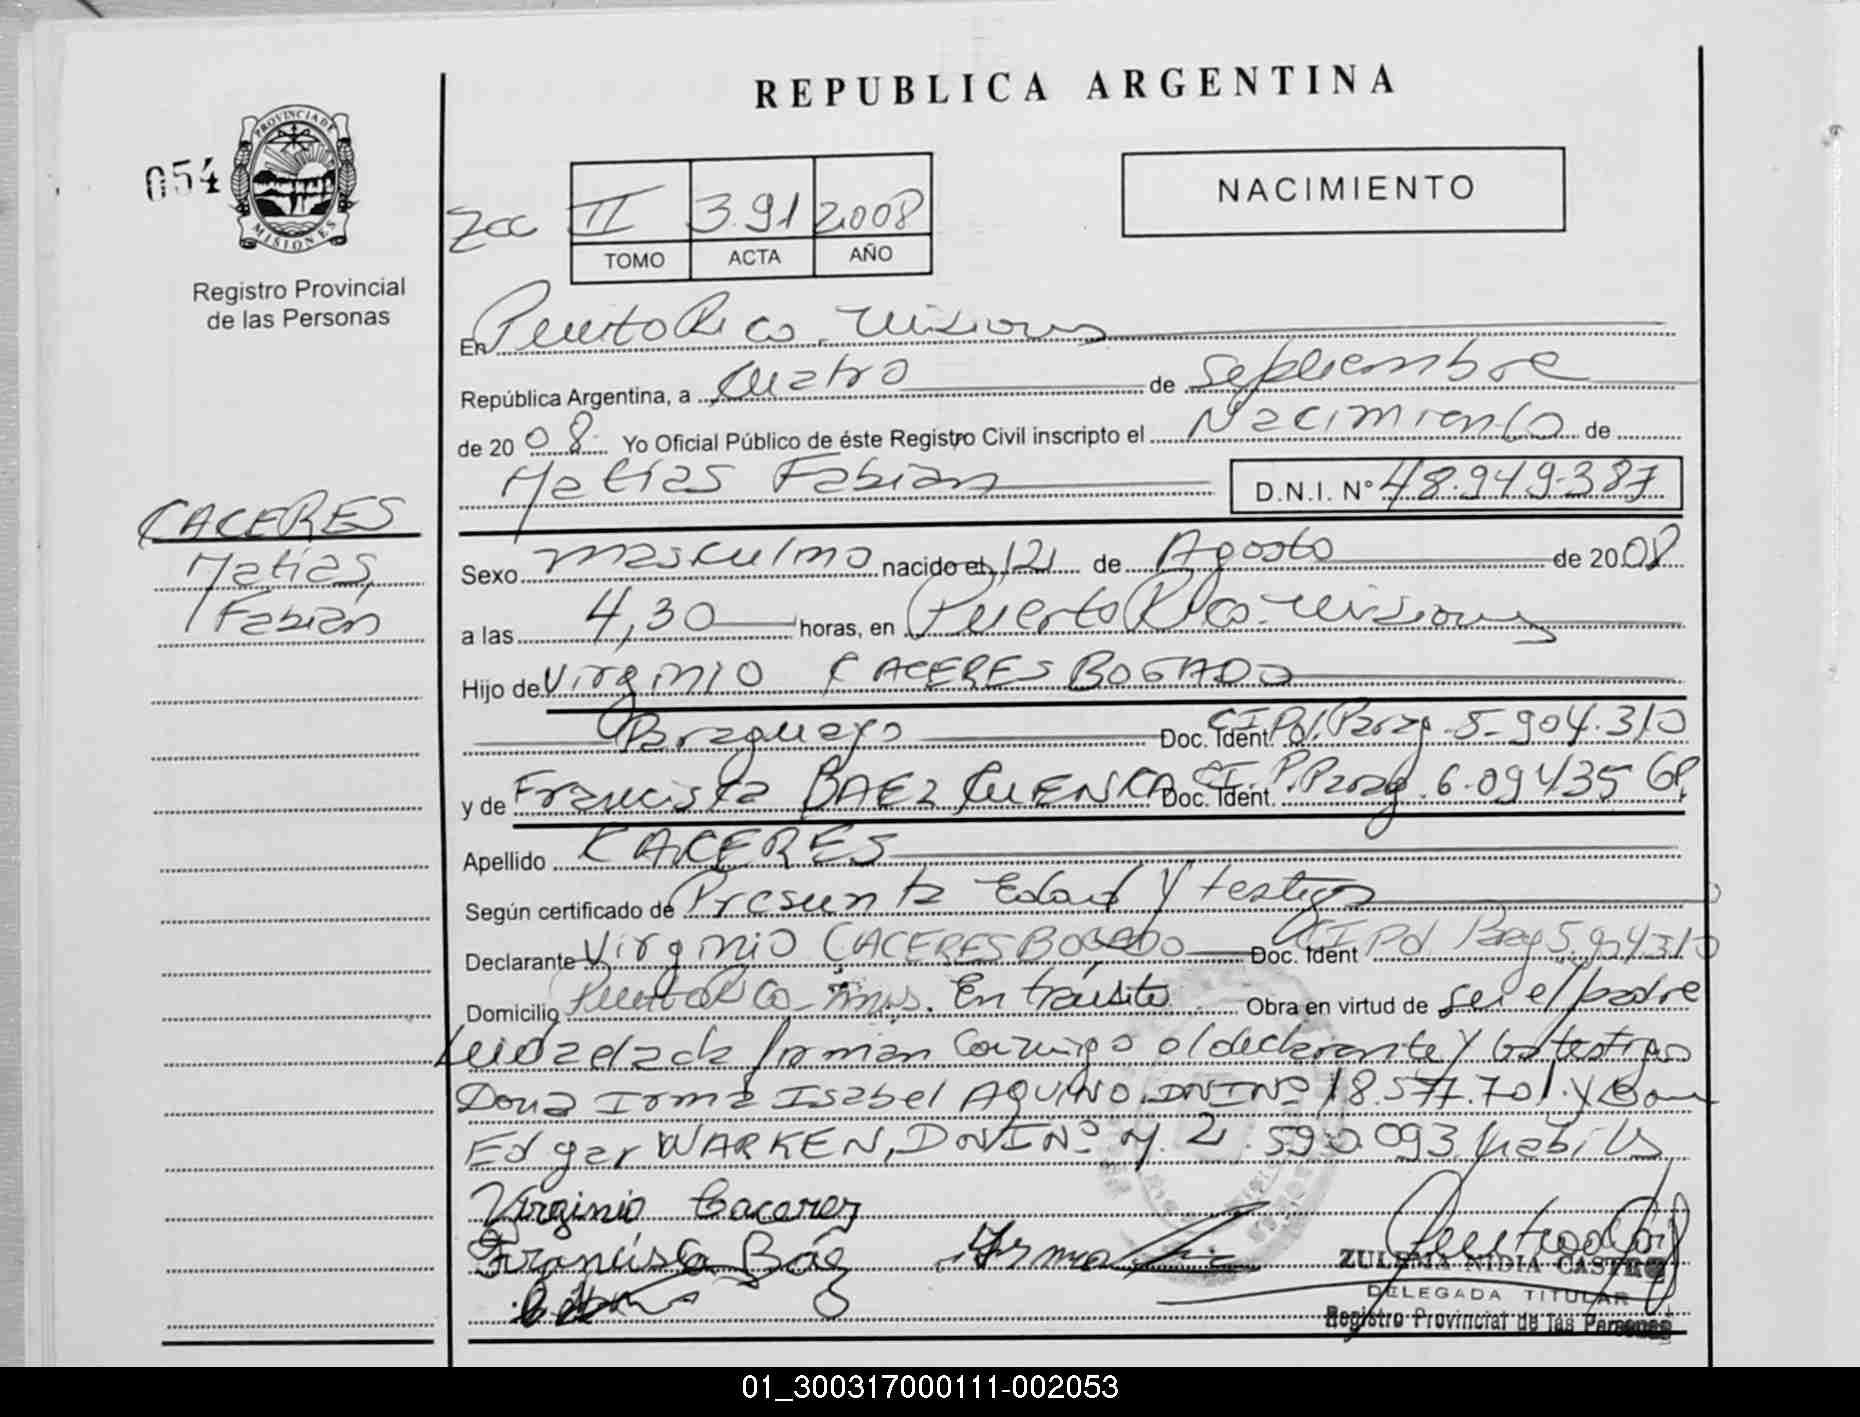 REPUBLICA ARGENTINA
054
PROVINCIA DE
MISIONES
Registro Provincial
de las Personas
II 391 2008
TOMO ACTA AÑO
NACIMIENTO
En Puerto Rico. Misiones
República Argentina, a Cuatro de Septiembre
de 20 08 Yo Oficial Público de éste Registro Civil inscripto el Nacimiento de
Matias Fabian D.N.I. N° 48.949.387
CACERES
Matias,
Fabián
Sexo masculino nacido el 12 de Agosto de 2008
a las 4,30 horas, en Puerto Rico. Misiones
Hijo de Virginio CACERES BOGADO
Paraguayo Doc. Ident. CI Pol. Parag. 5.904.310
y de Francisca BAEZ CUENCA Doc. Ident. CI. P. Parag. 6.094.435
Apellido CACERES
Según certificado de Presunta Edad y testigos
Declarante Virginio CACERES BOGADO Doc. Ident CI Pol Parag 5.904310
Domicilio Puerto Rico Mnes. En tránsito Obra en virtud de ser el padre
Leida el acta firman conmigo el declarante y los testigos
Dona Irma Isabel AQUINO DNI Nº 18.577.701. y Don
Edgar WARKEN, DNI Nº 590.093 habiles
Virginio Caceres
Francisca Báez
Irma
ZULEMA NIDIA CASTRO
DELEGADA TITULAR
Registro Provincial de las Personas
01_300317000111-002053